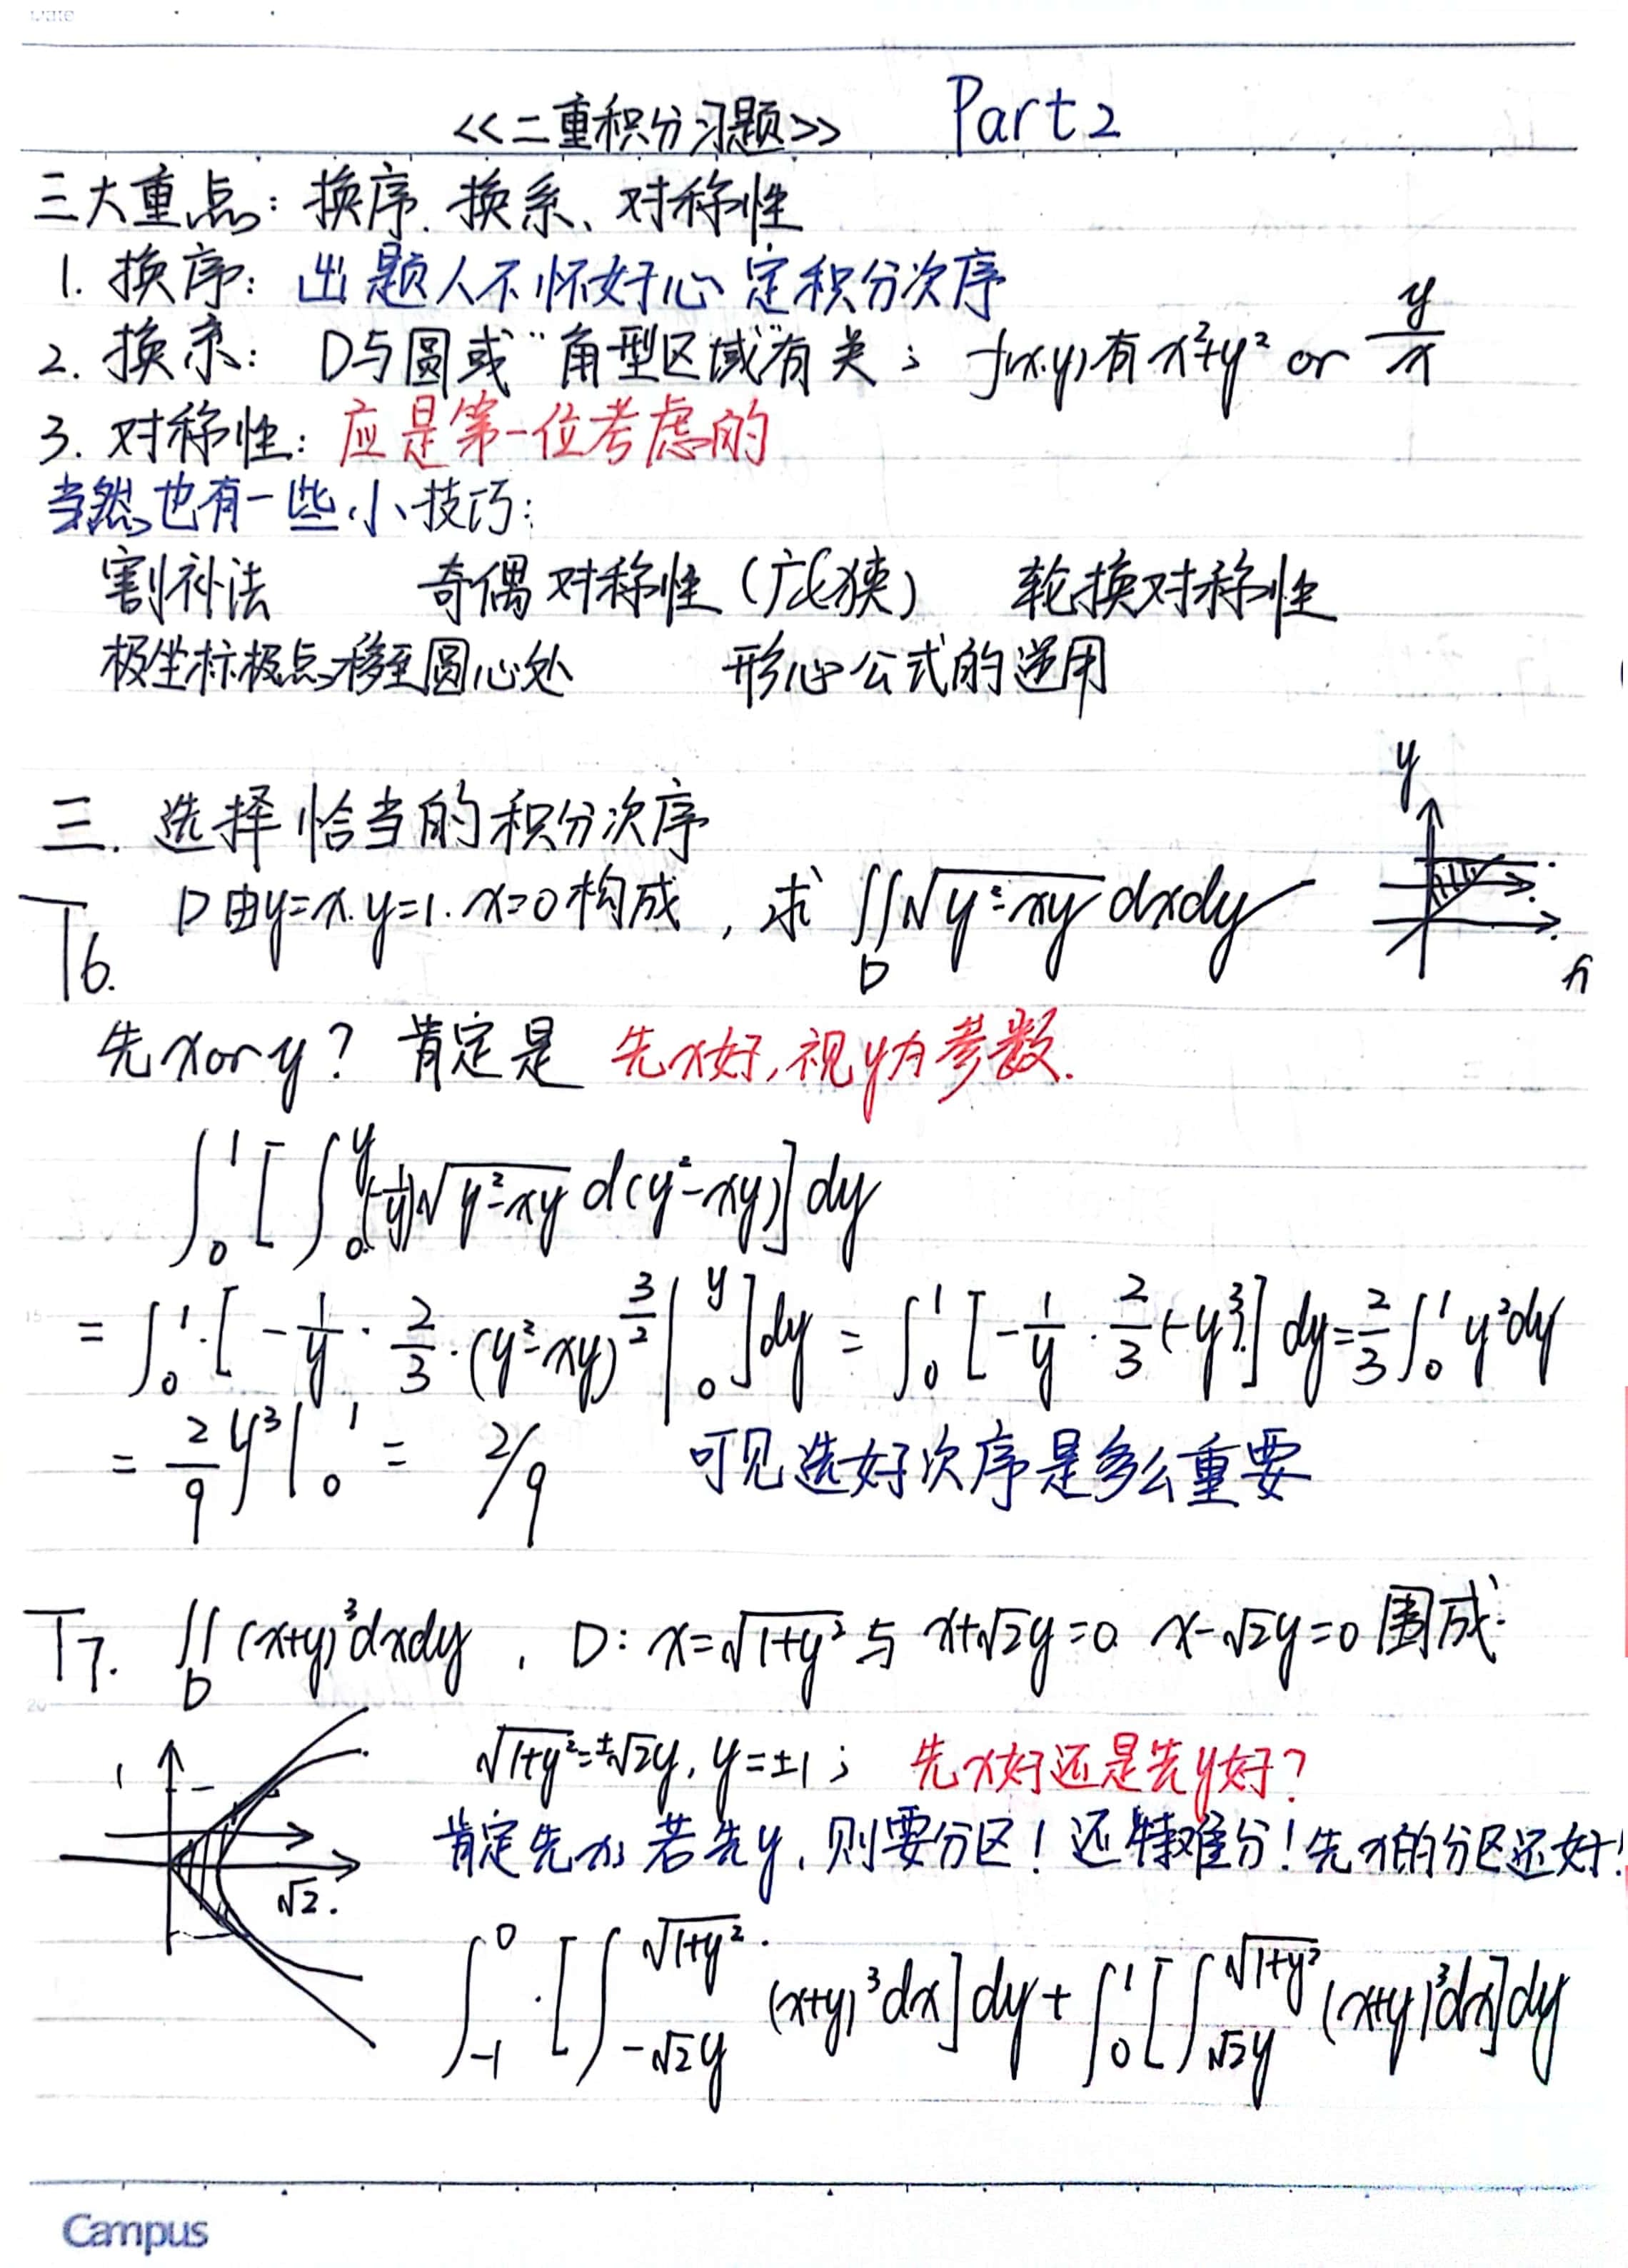 Date
<<二重积分习题>> Part2
三大重点：换序、换系、对称性
1. 换序：出题人不怀好心定积分次序
2. 换系：D与圆或"角型区域"有关；f(x,y)有x²+y² or y/x
3. 对称性：应是第一位考虑的
当然也有一些小技巧：
割补法 奇偶对称性（广&狭） 轮换对称性
极坐标极点移至圆心处 形心公式的逆用
三. 选择恰当的积分次序
T6. D由y=x. y=1. x=0构成，求 ∬_D √(y²-xy) dxdy
y
x
先x or y？肯定是 先x好，视y为参数.
∫_0^1 [∫_0^y (-1/y)√(y²-xy) d(y²-xy)] dy
= ∫_0^1 [-1/y · 2/3 · (y²-xy)^(3/2) |_0^y] dy = ∫_0^1 [-1/y · 2/3 (-y³)] dy = 2/3 ∫_0^1 y²dy
= 2/9 y³ |_0^1 = 2/9 可见选好次序是多么重要
T7. ∬_D (x+y)³dxdy , D: x=√(1+y²) 与 x+√2y=0. x-√2y=0 围成.
√(1+y²)=±√2y, y=±1； 先x好还是先y好？
肯定先x，若先y，则要分区！还特难分！先x的分区还好！
1
√2.
∫_{-1}^0 [∫_{-√2y}^{√(1+y²)} (x+y)³dx] dy + ∫_0^1 [∫_{√2y}^{√(1+y²)} (x+y)³dx] dy
15
20
Campus